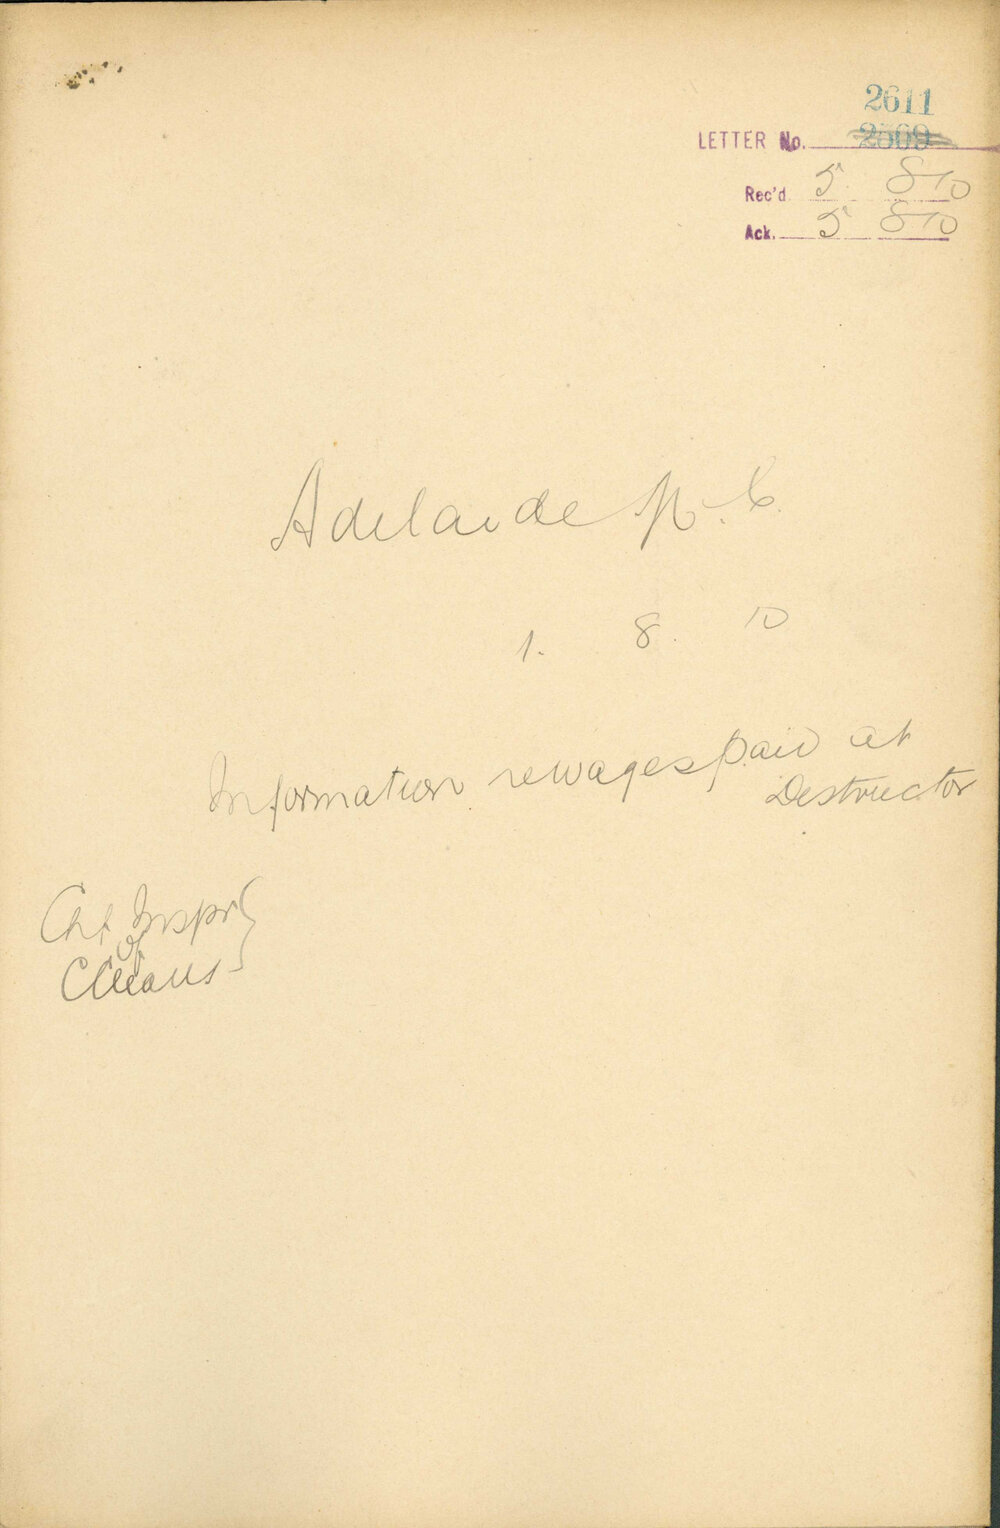 2611
LETTER No. 2569
Rec'd. 5 8 10
Ack. 5 8 10
Adelaide M.C.
1. 8. 10
Information re wages paid at
Destructor
Cht Inspr
of